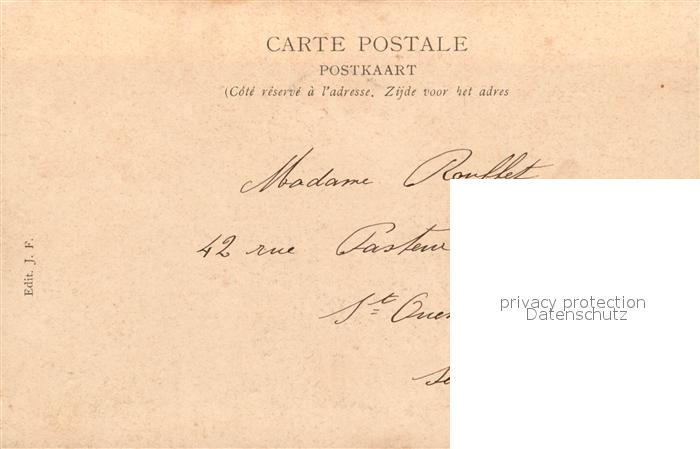 CARTE POSTALE
POSTKAART
(Côté réservé à l'adresse. Zijde voor het adres
Madame Roufflet
42 rue Pasteur
St Ouen
Edit. J. F.
privacy protection
Datenschutz